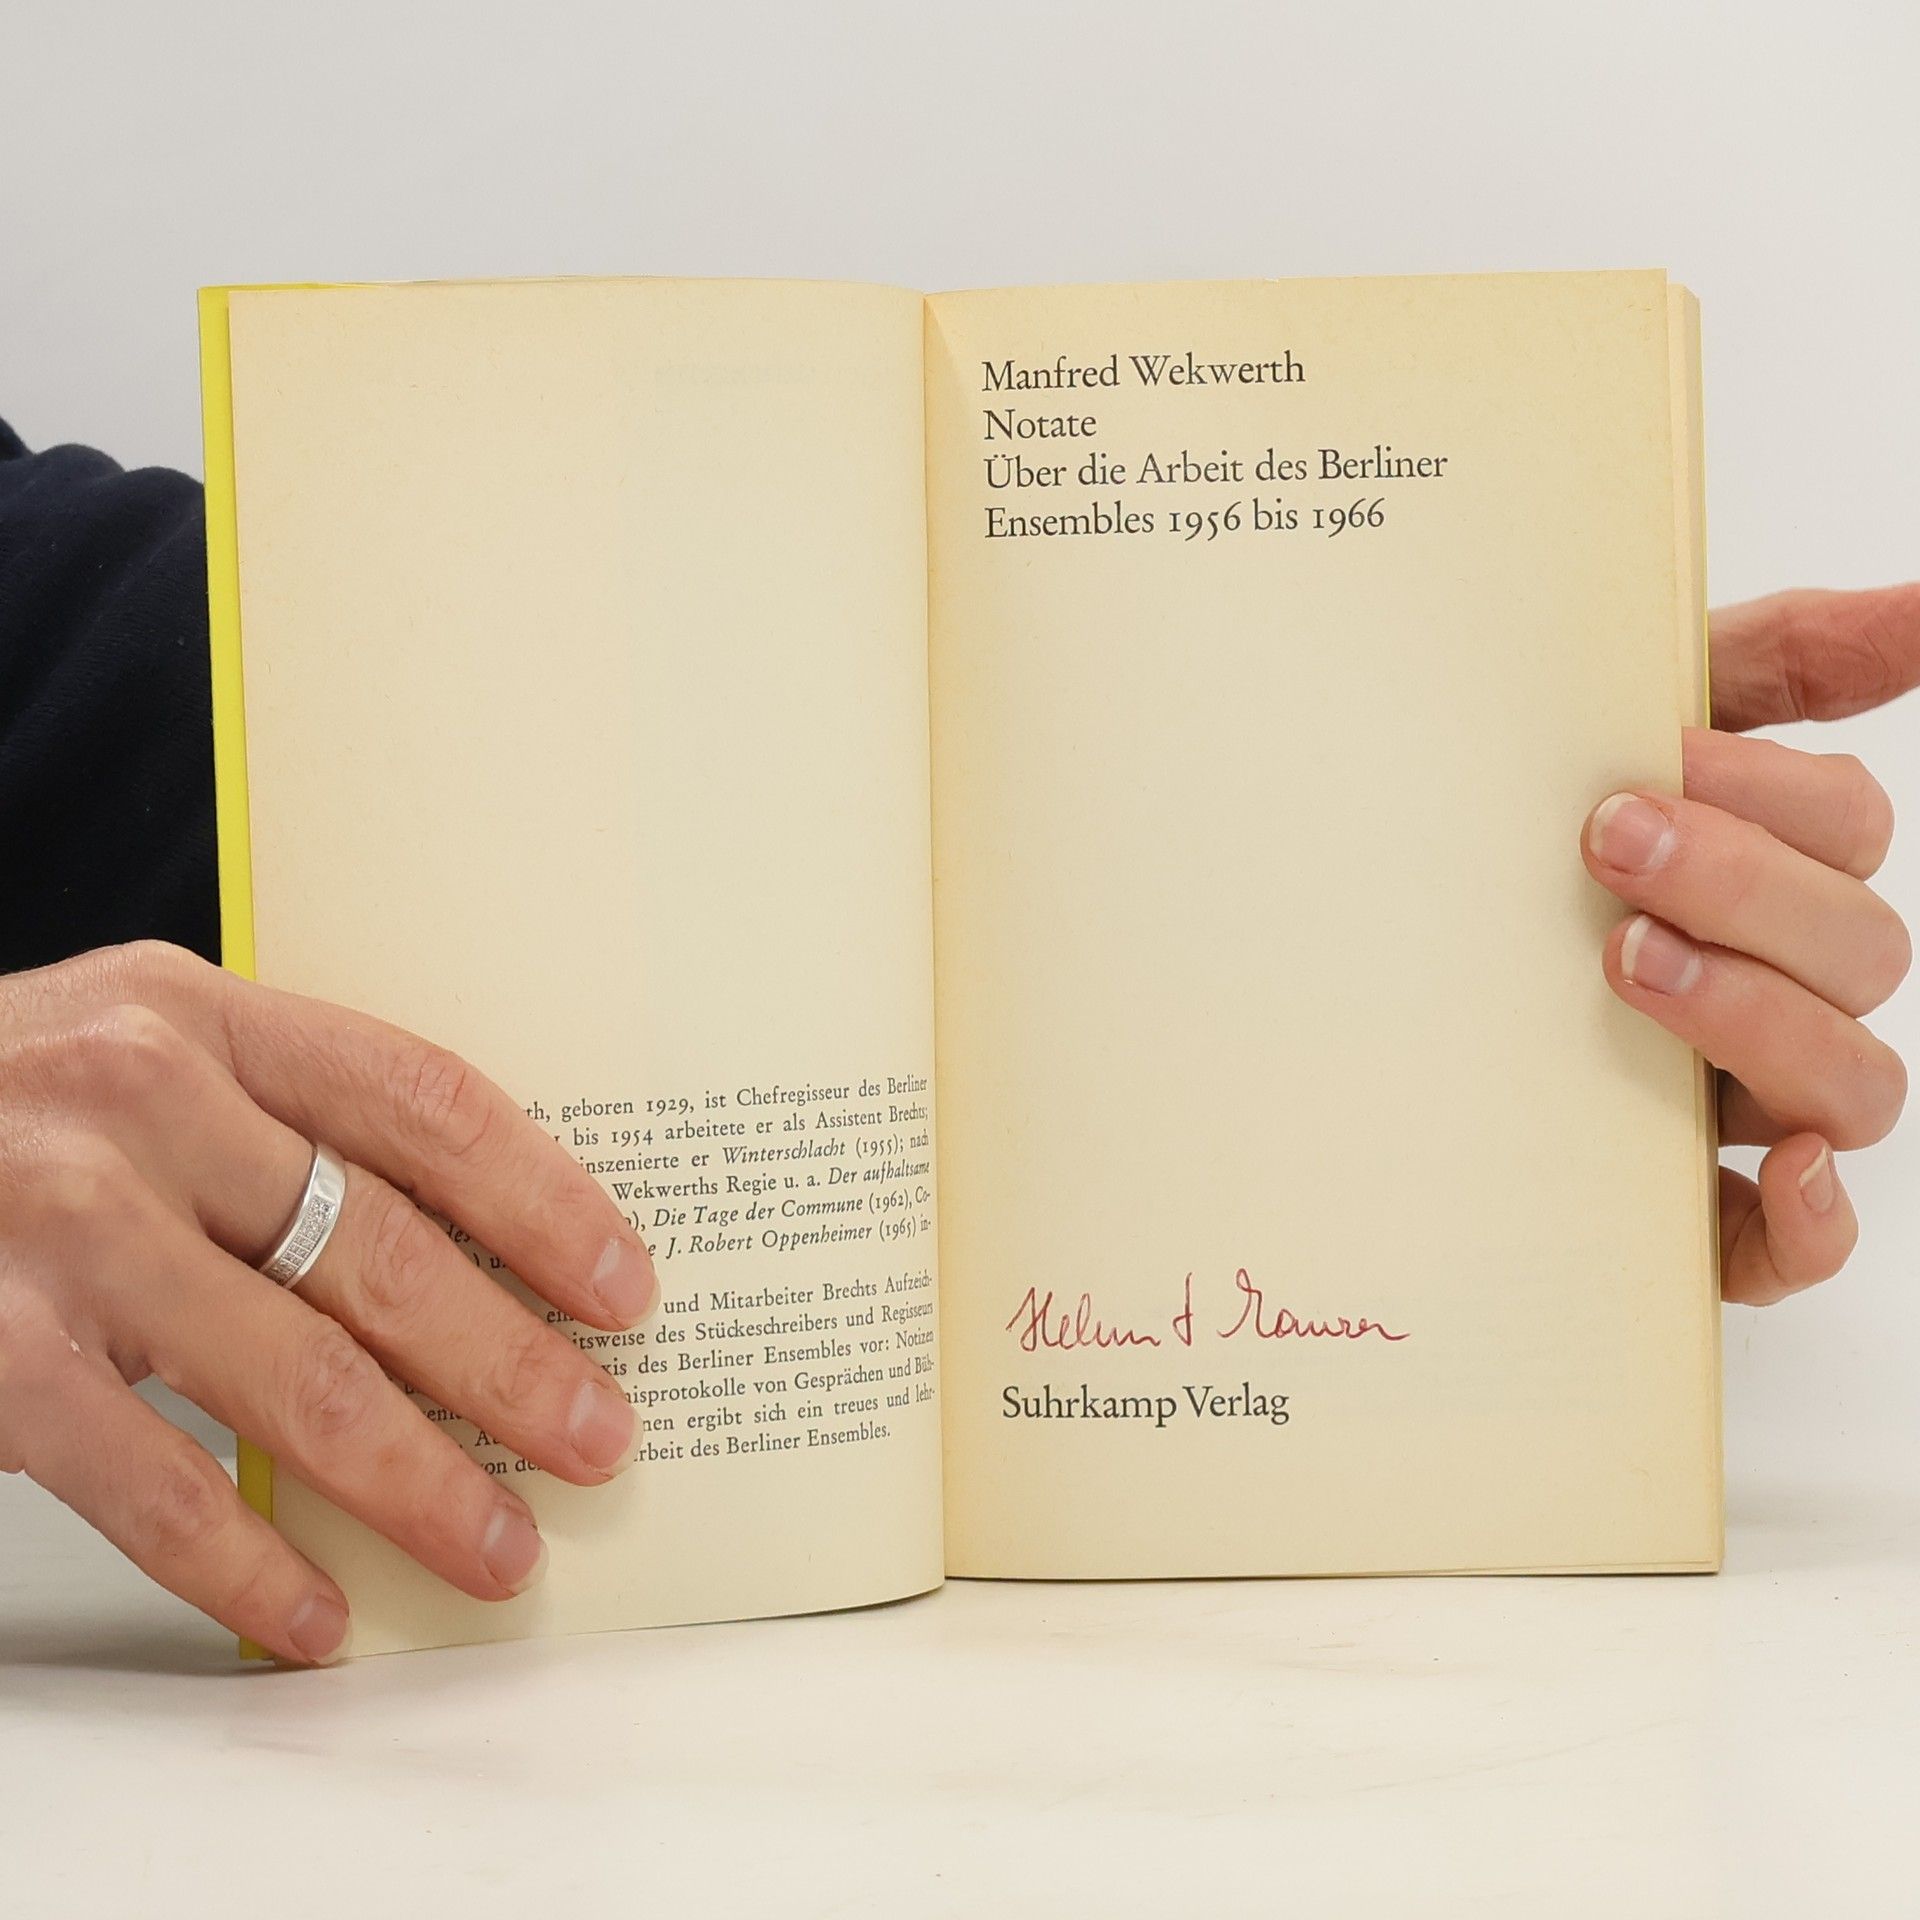 th, geboren 1929, ist Chefregisseur des Berliner
bis 1954 arbeitete er als Assistent Brechts;
inszenierte er Winterschlacht (1955); nach
Wekwerths Regie u. a. Der aufhaltsame
), Die Tage der Commune (1962), Co-
e J. Robert Oppenheimer (1965) in-
und Mitarbeiter Brechts Aufzeich-
itsweise des Stückeschreibers und Regisseurs
xis des Berliner Ensembles vor: Notizen
nisprotokolle von Gesprächen und Büh-
nen ergibt sich ein treues und lehr-
von de rbeit des Berliner Ensembles.
Manfred Wekwerth
Notate
Über die Arbeit des Berliner
Ensembles 1956 bis 1966
Helmut Maurer
Suhrkamp Verlag